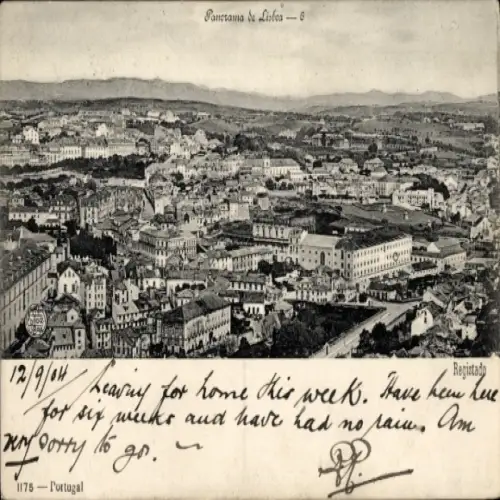 Panorama de Lisboa — 6
Registado
12/9/04 Leaving for home this week. Have been here
for six weeks and have had no rain. Am
very sorry to go. ~
1175 — Portugal